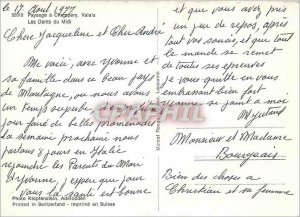 le 17 Aout 1977
55910 Paysage à Champéry, Valais
Les Dents du Midi
Chere Jacqueline et Cher André
Me voici, avec Yvonne et
sa famille dans ce beau pays
de Montagne, ou nous avons
un temps superbe
joué de belles promenades
la semaine prochaine nous
partons 8 jours en Italie
rejoindre les Parents du Mari
d'Yvonne, j'espere que pour
vous la santé est bonne
Photo Klopfenstein, Adelboden
Printed in Switzerland - Imprimé en Suisse
et que vous avez pris
un peu de repos, après
tout vos soucis, et que tout
le monde se remet
de toutes ses épreuves
je vous quitte en vous
embrassant bien fort
Yvonne se joint a moi
Monsieur et Madame
Bourgeais
Bien des choses a
Christian et sa femme